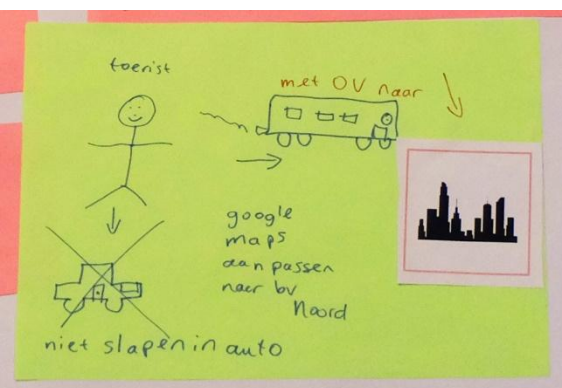 toerist
met OV naar
google
maps
aanpassen
naar bv
Noord
niet slapen in auto